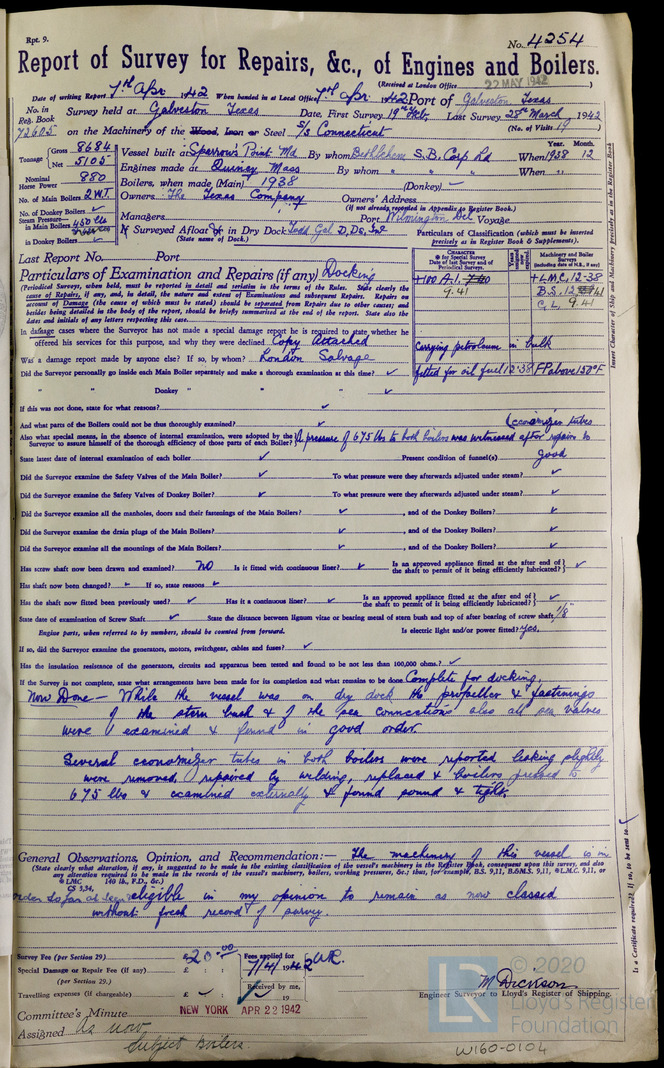 Rpt. 9.
No. 4254
Report of Survey for Repairs, &c., of Engines and Boilers.
(Received at London Office 22 MAY 1942)
Date of writing Report 7th Apr. 1942 When handed in at Local Office 7th Apr. 1942 Port of Galveston Texas
No. in Reg. Book 72605
Survey held at Galveston Texas Date, First Survey 19th Feb, Last Survey 28th March 1942
(No. of Visits 19)
on the Machinery of the Wood, Iron or Steel S/S Connecticut
Tonnage Gross 8684 Net 5105
Vessel built at Sparrow's Point Md By whom Bethlehem S.B. Corp Ld When 1938 12
Year. Month.
Engines made at Quincy Mass By whom " " " When "
Nominal Horse Power 880
Boilers, when made (Main) 1938 (Donkey)
No. of Main Boilers 2 W.T.
Owners The Texas Company Owners' Address
(if not already reported in Appendix to Register Book.)
No. of Donkey Boilers
Steam Pressure— in Main Boilers 450 lbs
in Donkey Boilers
Managers Port Wilmington Del Voyage
If Surveyed Afloat or in Dry Dock Todd Gal D, Ds, Inc
(State name of Dock.)
Particulars of Classification (which must be inserted precisely as in Register Book & Supplements).
Last Report No. Port
CHARACTER for Special Survey Date of last Survey and of Periodical Surveys.
Machinery and Boiler Surveys (including date of N.B., if any)
+100 A.1.
9.41
+L.M.C. 12-38
B.S. 12 41
C.L. 9.41
Carrying petroleum in bulk
fitted for oil fuel 12.38 F.P. above 150°F
Particulars of Examination and Repairs (if any) Docking
(Periodical Surveys, when held, must be reported in detail and seriatim in the terms of the Rules. State clearly the
cause of Repairs, if any, and, in detail, the nature and extent of Examinations and subsequent Repairs. Repairs on
account of Damage (the cause of which must be stated) should be separated from Repairs due to other causes; and
besides being detailed in the body of the report, should be briefly summarised at the end of the report. State also the
dates and initials of any letters respecting this case.
In damage cases where the Surveyor has not made a special damage report he is required to state whether he
offered his services for this purpose, and why they were declined Copy Attached
Was a damage report made by anyone else? If so, by whom? London Salvage
Did the Surveyor personally go inside each Main Boiler separately and make a thorough examination at this time?
" " Donkey " " " "
If this was not done, state for what reasons?
And what parts of the Boilers could not be thus thoroughly examined?
Also what special means, in the absence of internal examination, were adopted by the Surveyor to assure himself of the thorough efficiency of those parts of each Boiler? A pressure of 675 lbs to both boilers was witnessed after repairs to (economizer tubes
State latest date of internal examination of each boiler Present condition of funnel(s) good
Did the Surveyor examine the Safety Valves of the Main Boiler? To what pressure were they afterwards adjusted under steam?
Did the Surveyor examine the Safety Valves of Donkey Boiler? To what pressure were they afterwards adjusted under steam?
Did the Surveyor examine all the manholes, doors and their fastenings of the Main Boilers? , and of the Donkey Boilers?
Did the Surveyor examine the drain plugs of the Main Boilers? , and of the Donkey Boilers?
Did the Surveyor examine all the mountings of the Main Boilers? , and of the Donkey Boilers?
Has screw shaft now been drawn and examined? No Is it fitted with continuous liner? Is an approved appliance fitted at the after end of the shaft to permit of it being efficiently lubricated?
Has shaft now been changed? If so, state reasons
Has the shaft now fitted been previously used? Has it a continuous liner? Is an approved appliance fitted at the after end of the shaft to permit of it being efficiently lubricated?
State date of examination of Screw Shaft State the distance between lignum vitæ or bearing metal of stern bush and top of after bearing of screw shaft 1/8"
Engine parts, when referred to by numbers, should be counted from forward. Is electric light and/or power fitted? Yes.
If so, did the Surveyor examine the generators, motors, switchgear, cables and fuses?
Has the insulation resistance of the generators, circuits and apparatus been tested and found to be not less than 100,000 ohms?
If the Survey is not complete, state what arrangements have been made for its completion and what remains to be done Complete for docking.
Now Done — While the vessel was on dry dock the propeller & fastenings
of the stern bush & of the sea connections also all sea valves
were examined & found in good order.
Several economizer tubes in both boilers were reported leaking slightly
were removed, repaired by welding, replaced & boilers pressed to
675 lbs & examined externally & found sound & tight.
General Observations, Opinion, and Recommendation:— The machinery of this vessel is in
(State clearly what alteration, if any, is suggested to be made in the existing classification of the vessel's machinery in the Register Book, consequent upon this survey, and also
any alteration required to be made in the records of the vessel's machinery, boilers, working pressures, &c.; thus, for example, B.S. 9,11, B.&M.S. 9,11, L.M.C. 9,11, or
L.M.C. 140 lb., F.D., &c.)
CS 3,34,
order so far as seen eligible in my opinion to remain as now classed
without fresh record of survey.
Survey Fee (per Section 29) $20.00
Fees applied for 7/4/1942
Special Damage or Repair Fee (if any) £ : :
(per Section 29.)
Received by me,
Travelling expenses (if chargeable) £ : 19
M Dickson
Engineer Surveyor to Lloyd's Register of Shipping.
Committee's Minute NEW YORK APR 22 1942
Assigned As now
Subject boilers.
W160-0104
Insert Character of Ship and Machinery precisely as in the Register Book
Is a Certificate required? If so, to be sent to
© 2020
LR
Lloyd's Register
Foundation